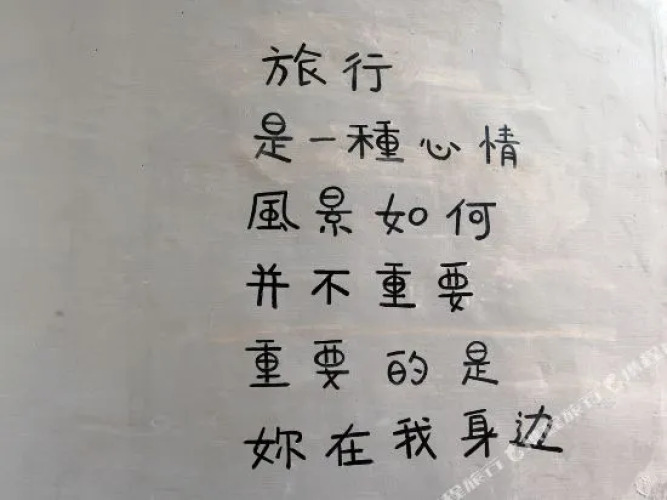 旅行
是一種心情
風景如何
并不重要
重要的是
妳在我身边
携程旅行
携程旅行